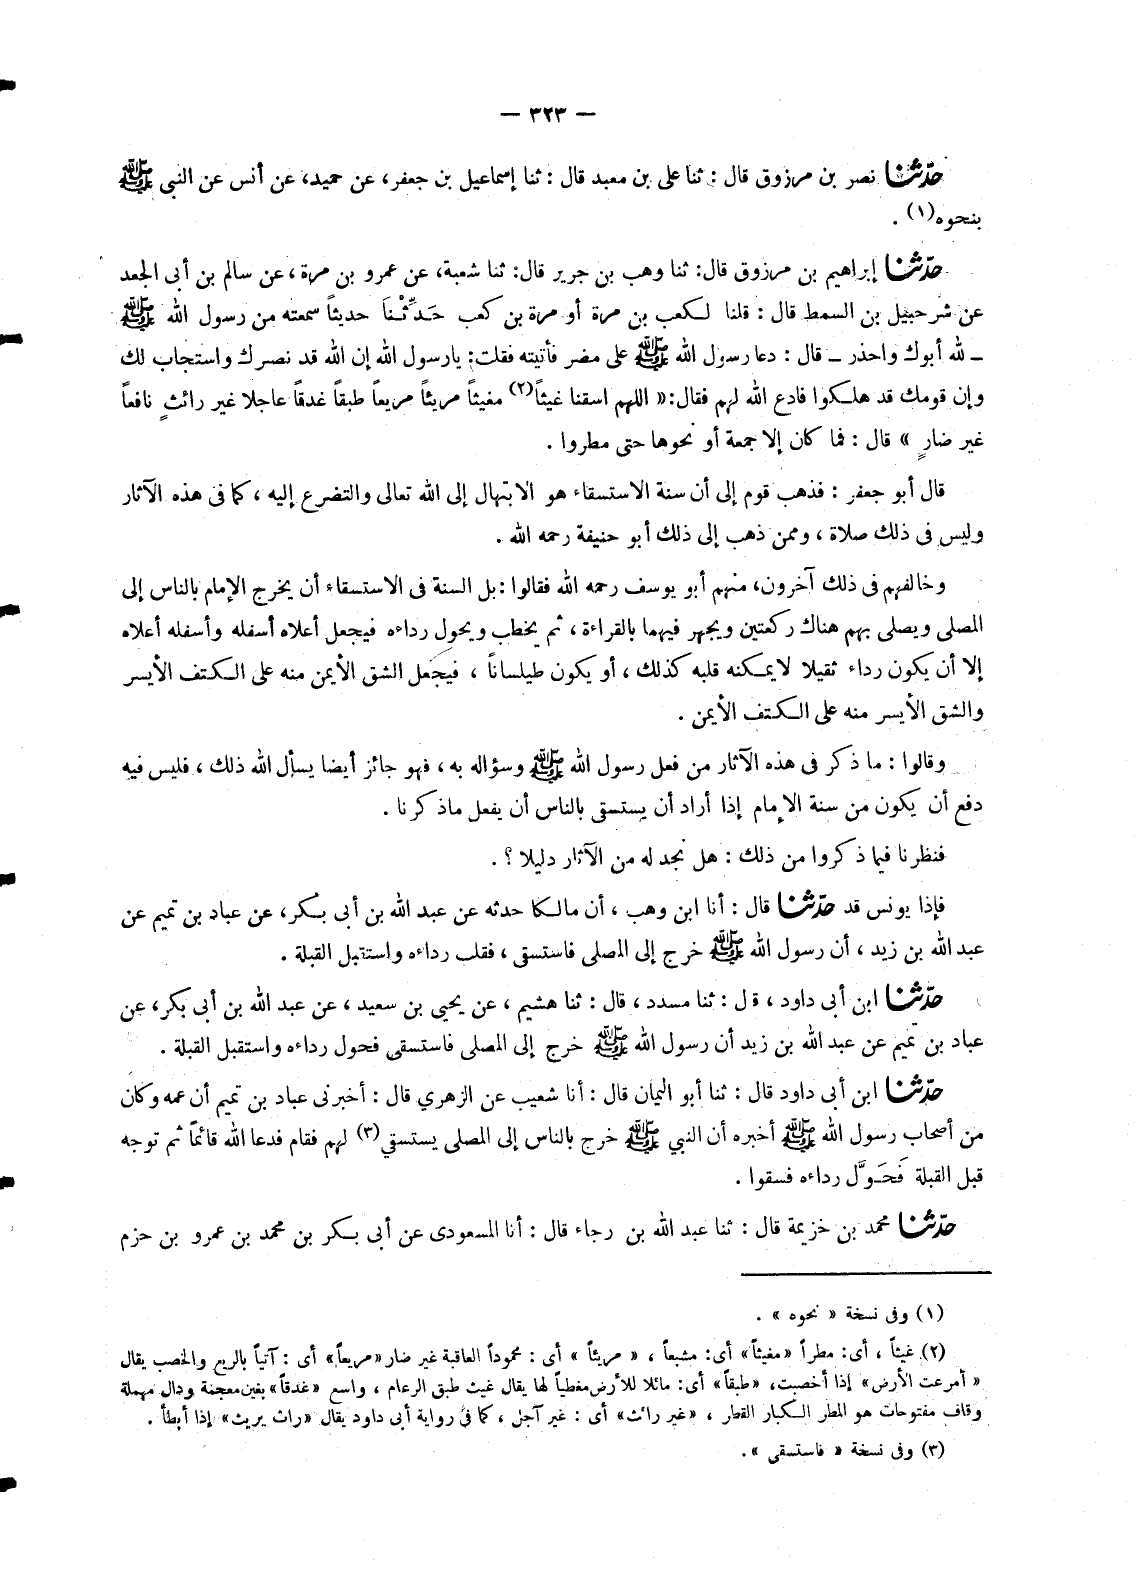 — ٣٢٣ —
حدّثنا نصر بن مرزوق قال : ثنا على بن معبد قال : ثنا إسماعيل بن جعفر، عن حميد، عن أنس عن النبي ﷺ
بنحوه(١) .
حدّثنا إبراهيم بن مرزوق قال: ثنا وهب بن جرير قال: ثنا شعبة، عن عمرو بن مرة ، عن سالم بن أبى الجعد
عن شرحبيل بن السمط قال : قلنا لكعب بن مرة أو مرة بن كعب حَدِّثْنَا حديثاً سمعته من رسول الله ﷺ
ـ لله أبوك واحذر ـ قال : دعا رسول الله ﷺ على مضر فأتيته فقلت: يارسول الله إن الله قد نصرك واستجاب لك
وإن قومك قد هلكوا فادع الله لهم فقال:« اللهم اسقنا غيثاً(٢) مغيثاً مريئاً مريعاً طبقاً غدقاً عاجلا غير رائثٍ نافعاً
غير ضارٍ » قال : فما كان إلا جمعة أو نحوها حتى مطروا .
قال أبو جعفر : فذهب قوم إلى أن سنة الاستسقاء هو الابتهال إلى الله تعالى والتضرع إليه ، كما فى هذه الآثار
وليس فى ذلك صلاة ، وممن ذهب إلى ذلك أبو حنيفة رحمه الله .
وخالفهم فى ذلك آخرون، منهم أبو يوسف رحمه الله فقالوا : بل السنة فى الاستسقاء أن يخرج الإمام بالناس إلى
المصلى ويصلى بهم هناك ركعتين ويجهر فيهما بالقراءة ، ثم يخطب ويحول رداءه فيجعل أعلاه أسفله وأسفله أعلاه
إلا أن يكون رداء ثقيلا لايمكنه قلبه كذلك ، أو يكون طيلساناً ، فيجعل الشق الأيمن منه على الكتف الأيسر
والشق الأيسر منه على الكتف الأيمن .
وقالوا : ما ذكر فى هذه الآثار من فعل رسول الله ﷺ وسؤاله به ، فهو جائز أيضا يسأل الله ذلك ، فليس فيه
دفع أن يكون من سنة الإمام إذا أراد أن يستسقى بالناس أن يفعل ماذكرنا .
فنظرنا فيما ذكروا من ذلك : هل نجد له من الآثار دليلا ؟ .
فإذا يونس قد حدّثنا قال : أنا ابن وهب ، أن مالكا حدثه عن عبد الله بن أبى بكر، عن عباد بن تميم عن
عبد الله بن زيد ، أن رسول الله ﷺ خرج إلى المصلى فاستسقى ، فقلب رداءه واستقبل القبلة .
حدّثنا ابن أبى داود ، قال : ثنا مسدد ، قال : ثنا هشيم ، عن يحيى بن سعيد ، عن عبد الله بن أبى بكر، عن
عباد بن تميم عن عبد الله بن زيد أن رسول الله ﷺ خرج إلى المصلى فاستسقى فحول رداءه واستقبل القبلة .
حدّثنا ابن أبى داود قال : ثنا أبو اليمان قال : أنا شعيب عن الزهري قال : أخبرنى عباد بن تميم أن عمه وكان
من أصحاب رسول الله ﷺ أخبره أن النبي ﷺ خرج بالناس إلى المصلى يستسقي(٣) لهم فقام فدعا الله قائماً ثم توجه
قبل القبلة فَحَوَّل رداءه فسقوا .
حدّثنا محمد بن خزيمة قال : ثنا عبد الله بن رجاء قال : أنا المسعودى عن أبى بكر بن محمد بن عمرو بن حزم
(١) وفى نسخة « نحوه » .
(٢) غيثاً ، أى: مطراً «مغيثاً» أى: مشبعاً ، « مريئاً » أى : محموداً العاقبة غير ضار «مريعاً» أى : آتياً بالريع والخصب يقال
« أمرعت الأرض» إذا أخصبت، «طبقاً» أى: مائلا للأرض مغطياً لها يقال غيث طبق الرعام ، واسع «غدقاً» بغين معجمة ودال مهملة
وقاف مفتوحات هو المطر الكبار القطر ، «غير رائث» أى : غير آجل ، كما فى رواية أبى داود يقال «راث يريث» إذا أبطأ .
(٣) وفى نسخة « فاستسقى ».